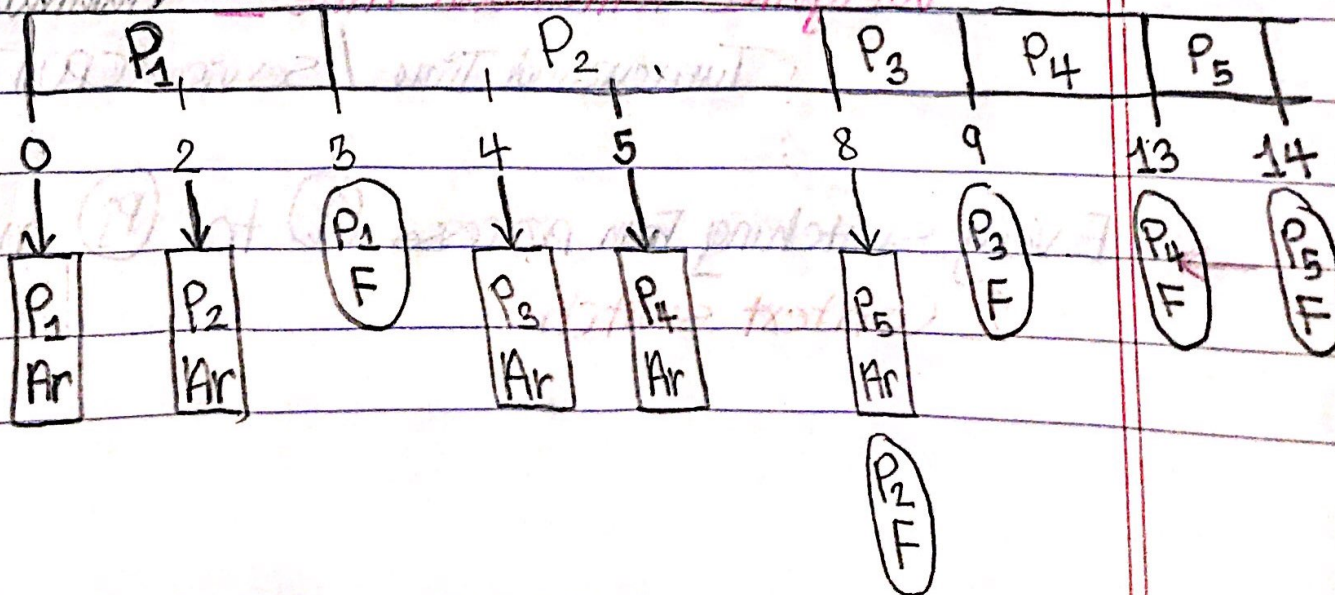 P1 P2 P3 P4 P5
0 2 3 4 5 8 9 13 14
P1 Ar P2 Ar P1 F P3 Ar P4 Ar P5 Ar P3 F P4 F P5 F
P2 F